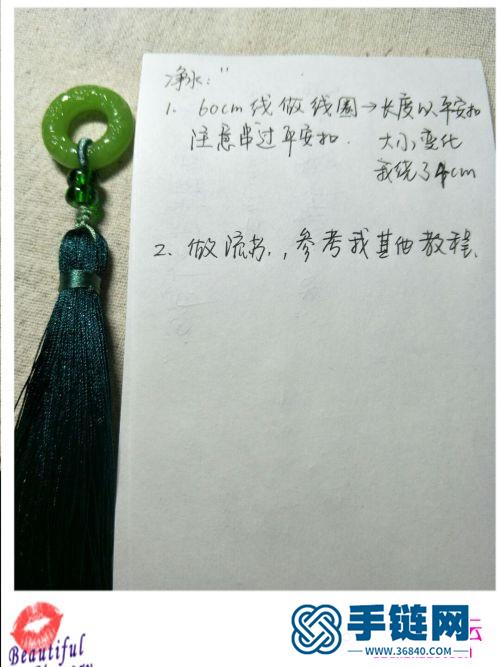 净水:"
1. 60cm线做线圈→长度以平安扣
注意串过平安扣. 大小变化
我绕了4cm
2. 做流苏,,参考我其他教程.
Beautiful
手链网
www.36840.com